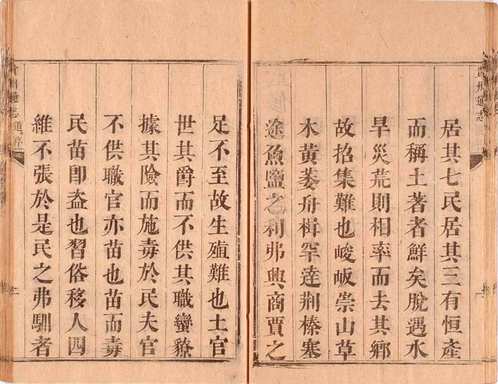 州通志
居其七民居其三有恒產
而稱土著者鮮矣脫遇水
旱災荒則相率而去其鄉
故招集難也峻岅崇山草
木黃萎舟楫罕逹荆榛塞
途魚鹽之利弗興商賈之
足不至故生殖難也土官
世其爵而不供其職蠻獠
據其險而施毒於民夫官
不供職官亦苗也苗而毒
民苗卽盗也習俗移人四
維不張於是民之弗馴者
州通志